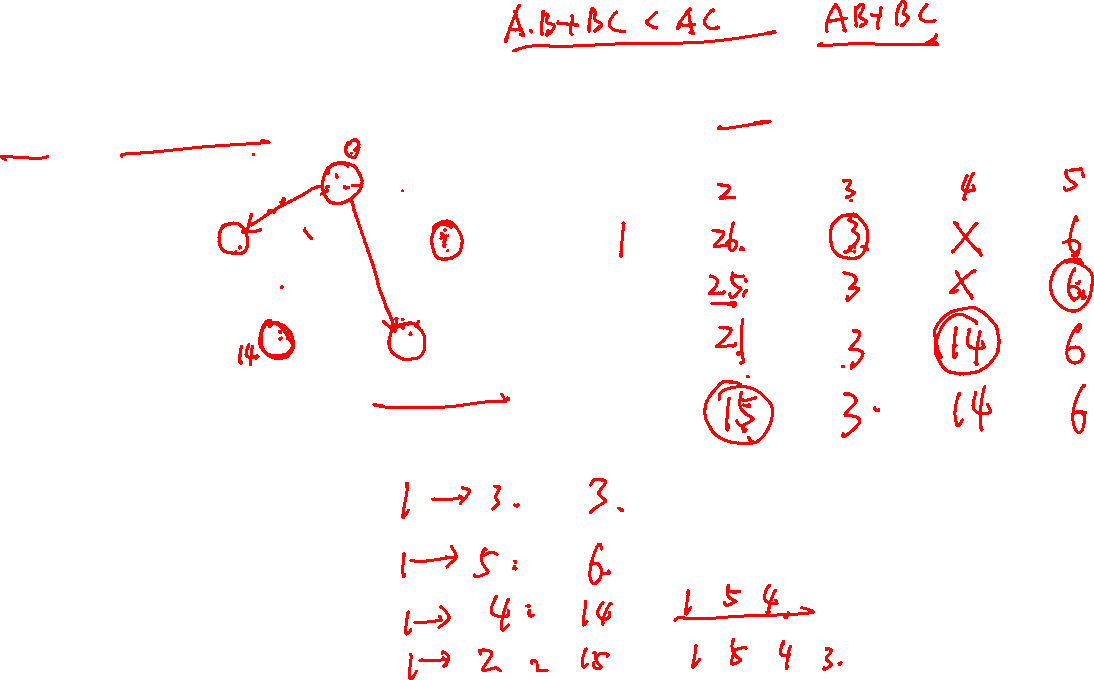 A.B+BC < AC AB+BC
0
2 3 4 5
1 26. 3. X 6
25 3 X 6.
14 21 3 14 6
15 3. 14 6
1 → 3. 3.
1 → 5: 6
1 → 4: 14 1 5 4
1 → 2 2 15 1 5 4 3.